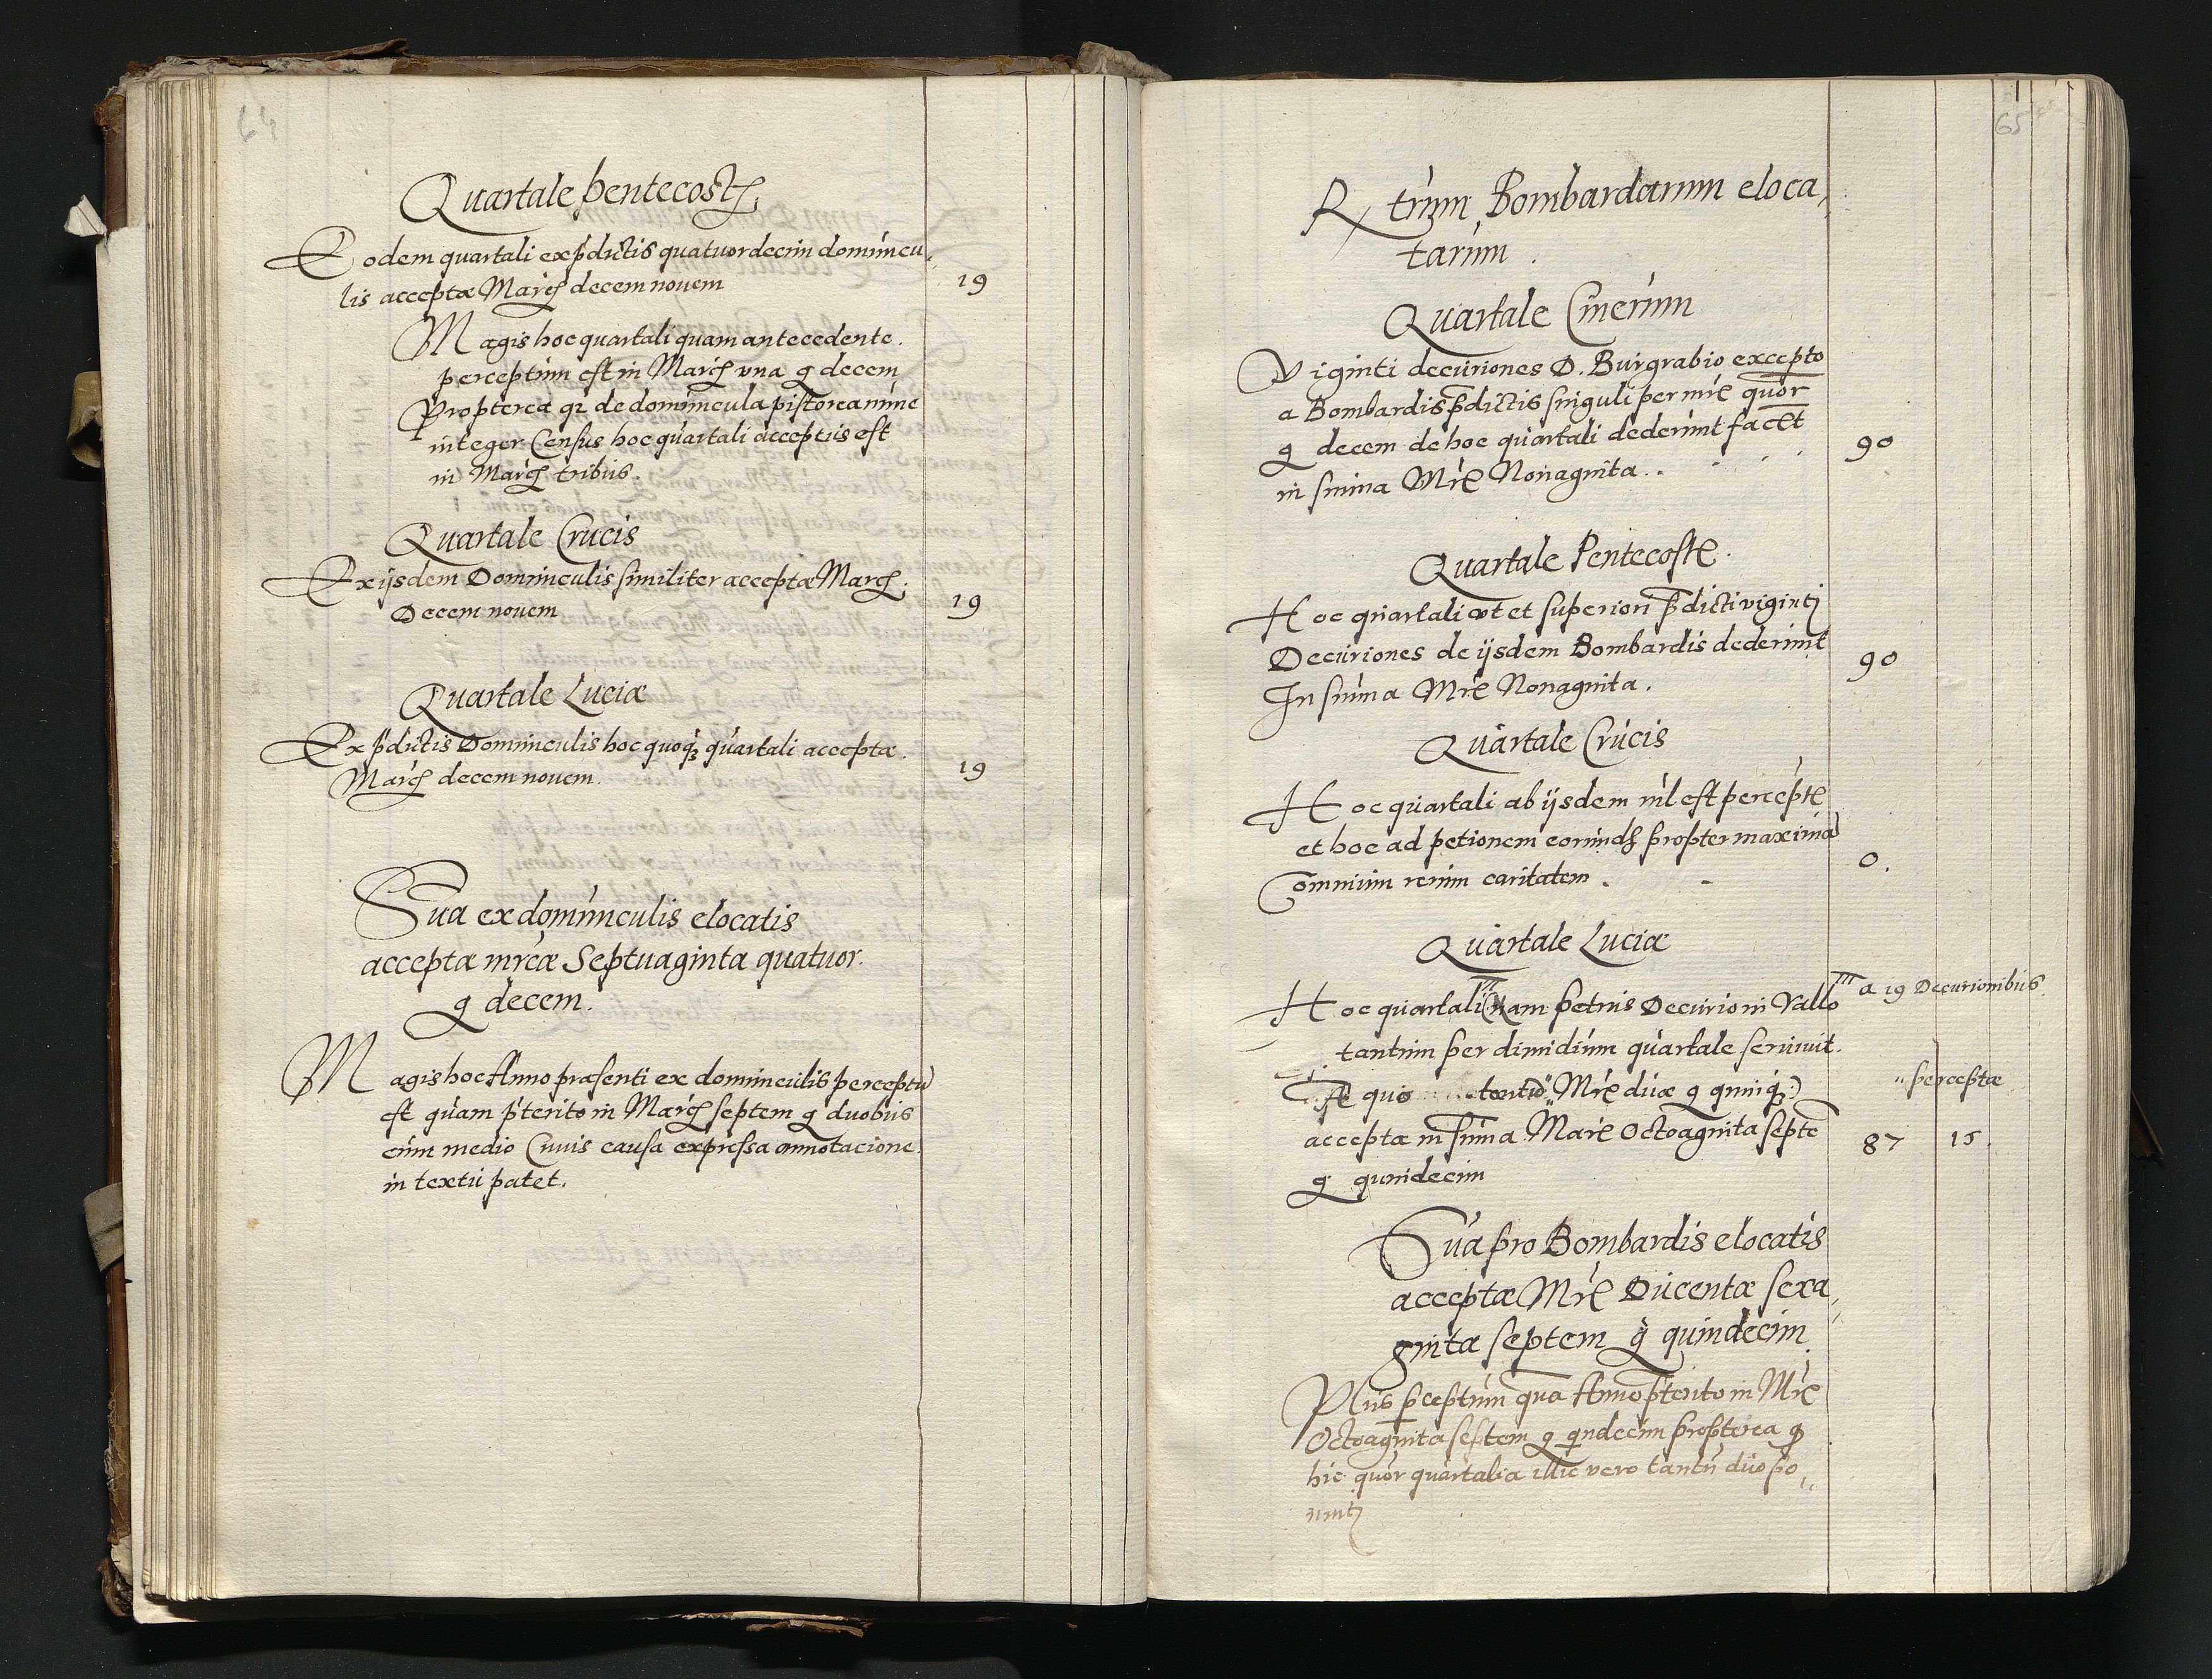 64
Quartale pentecost
Eodem quartali ex pdictis quatuordecim domuncu
lis acceptæ Marc decem nouem 19
Magis hoc quartali quam antecedente.
perceptum est in Marc vna g decem
Propterea qz de domuncula pistorea nunc
integer Census hoc quartali acceptus est
in Marc tribus.
Quartale Crucis
Ex ijsdem Domunculis similiter acceptæ Marc.
Decem nouem 19
Quartale Luciæ
Ex pdictis Domunculis hoc quoq quartali acceptæ.
Marc decem nouem 19
Sua ex domunculis elocatis
acceptæ mrcæ Septuaginta quatuor.
g decem.
Magis hoc Anno præsenti ex domunculis perceptu
est quam pterito in Marc septem g duobus
cum medio Cuuis causa expressa annotacione
in textu patet.
65
R trum Bombardarum eloca
tarum.
Quartale Cinerum
Viginti decuriones D. Burgrabio excepto
a Bombardis pdictis singuli per mre quor
g decem de hoc quartali dederunt facet
in suma Mre Nonaginta. 90
Quartale Pentecoste.
Hoc quartali vt et superiori pdicti viginti
Decuriones de ijsdem Bombardis dederunt
In suma Mre Nonaginta. 90
Quartale Crucis
Hoc quartali ab ijsdem nil est percepte
et hoc ad petionem eorund propter maxima
omnium rerum caritatem. 0.
Quartale Luciæ
a 19 Decurionibus
Hoc quartali (Nam petrus Decurio in Vallo
tantum per dimidium quartale seruiuit.
quo tentæ Mre duæ g quinq) perceptæ
acceptæ in suma Marc Octoaginta septe 87 15.
g quindecim
Sua pro Bombardis elocatis
acceptæ Mre Ducentæ sexa
ginta septem g quindecim
Plus pceptum qua Anno pterito in Mre
Octoaginta septem g qindecim propterea q
hic quor quartalia illic vero tantu duo po
nunt